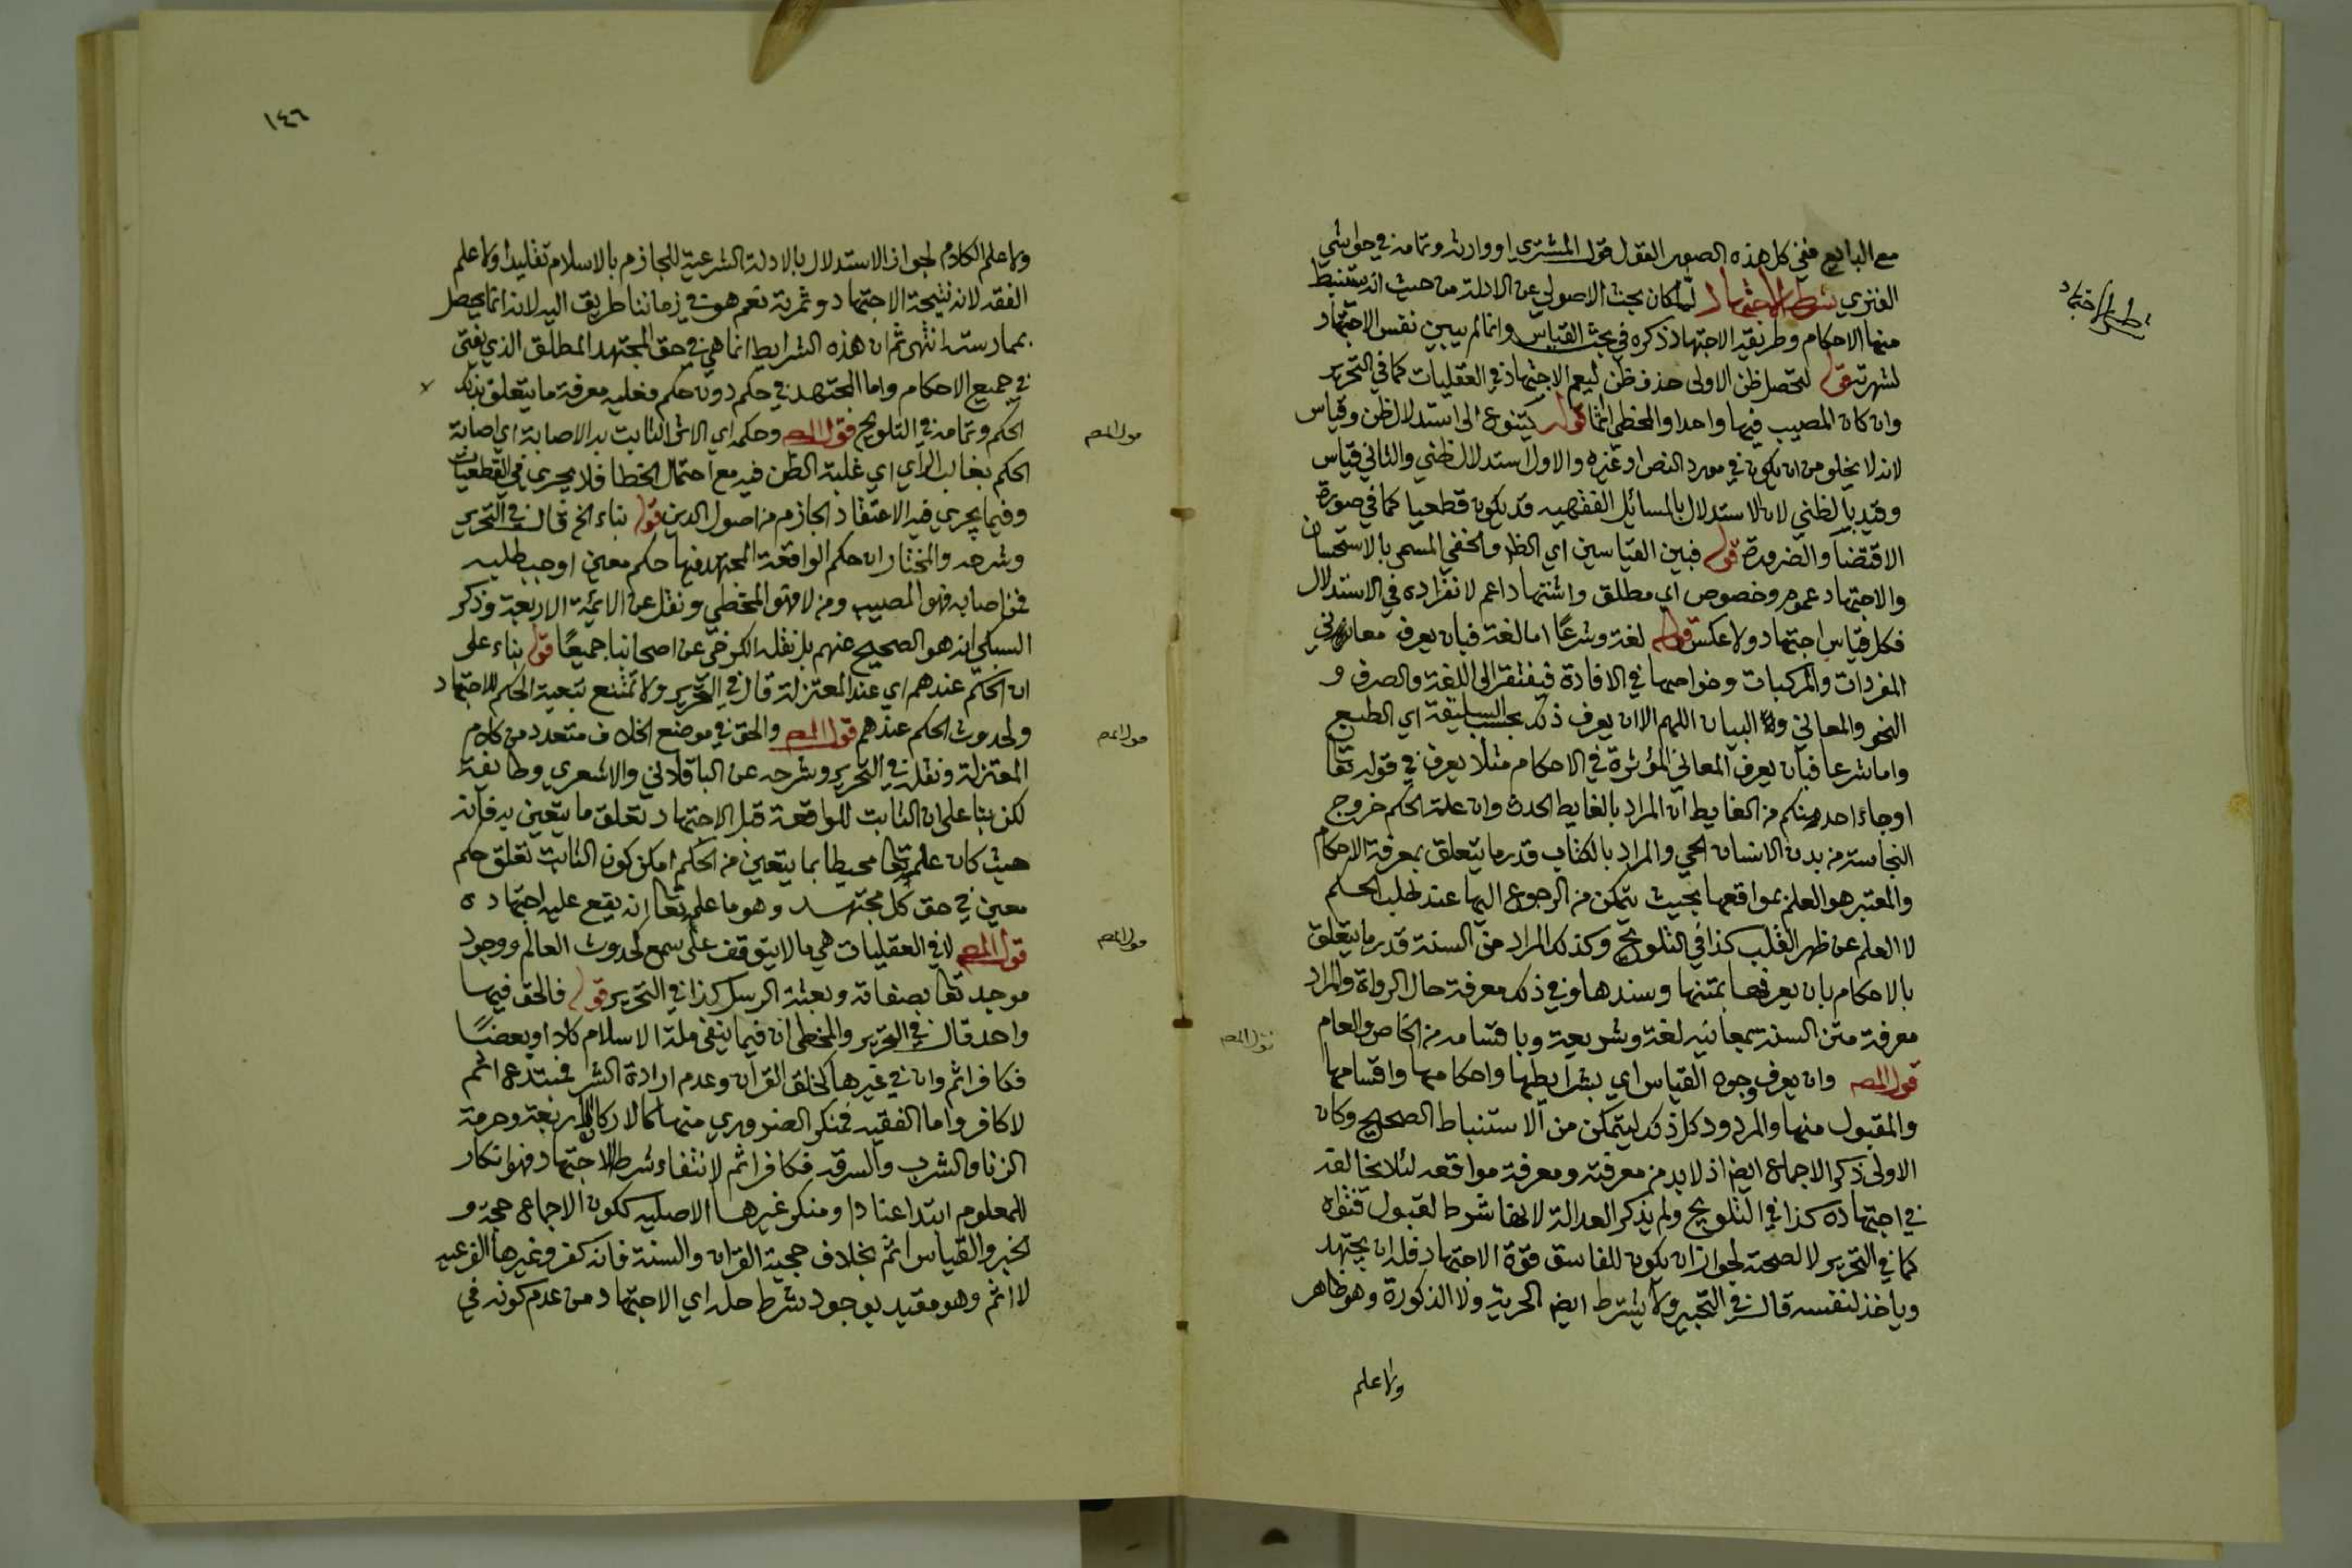 مع البايع ففي كل هذه الصور القول قول المشتري او وارثه وتمامه في حواشي
الغزي شرط الاجتهاد لما كان بحث الاصولي عن الادلة من حيث انه يستنبط
شرط الاجتهاد
منها الاحكام وطريقه الاجتهاد ذكره في بحث القياس وانما لم يبين نفس الاجتهاد
لشهرته قوله لتحصل ظن الاولى حذف ظن ليعم الاجتهاد في العقليات كما في التحرير
وان كان المصيب فيها واحدا والمخطي اثما قوله يتنوع الى استدلال ظن وقياس
لانه لا يخلو من ان يكون في مورد النص او غيره والاول استدلال ظني والثاني قياس
وقيد بالظني لان الاستدلال بالمسائل الفقهيه قد يكون قطعيا كما في صورة
الاقتضا والضرورة قوله فبين القياسين اي الظاهر والخفي المسمى بالاستحسان
والاجتهاد عموم وخصوص اي مطلق واشتهاد اعم لانفراده في الاستدلال
فكل قياس اجتهاد ولا عكس قوله لغة وشرعا اما لغة فبان يعرف معاني
المفردات والمركبات وخواصها في الافادة فيفتقر الى اللغة والصرف و
النحو والمعاني والبيان اللهم الا ان يعرف ذلك بحسب السليقة اي الطبع
واما شرعا فبان يعرف المعاني المؤثرة في الاحكام مثلا يعرف في قوله تعا
او جاء احد منكم من الغايط ان المراد بالغايط الحدث وان علة الحكم خروج
النجاسة من بدن الانسان الحي والمراد بالكتاب قدر ما يتعلق بمعرفة الاحكام
والمعتبر هو العلم بمواقعها بحيث يتمكن من الرجوع اليها عند طلب الحكم
لا العلم عن ظهر القلب كذا في التلويح وكذلك المراد من السنة قدر ما يتعلق
بالاحكام بان يعرفها بمتنها وسندها وفي ذلك معرفة حال الرواة والمراد
معرفة متن السنة بمعانيه لغة وشريعة وباقسامه من الخاص والعام
قول المص وان يعرف وجوه القياس اي بشرايطها واحكامها واقسامها
والمقبول منها والمردود كل ذلك ليتمكن من الاستنباط الصحيح وكان
الاولى ذكر الاجماع ايضا اذ لا بد من معرفته ومعرفة مواقعه لئلا يخالفه
في اجتهاده كذا في التلويح ولم يذكر العدالة لانها شرط لقبول فتواه
كما في التحرير لا لصحته لجواز ان يكون للفاسق قوة الاجتهاد فله ان يجتهد
وياخذ لنفسه قال في التحبير ولا يشترط ايضا الحرية ولا الذكورة وهو ظاهر
ولا علم
١٤٦
ولا علم الكلام لجواز الاستدلال بالادلة الشرعية للجازم بالاسلام تقليدا ولا علم
الفقه لانه نتيجة الاجتهاد وثمرته نعم هو في زماننا طريق اليه لانه انما يحصل
بممارسته انتهى ثم ان هذه الشرايط انما هي في حق المجتهد المطلق الذي يفتي
في جميع الاحكام واما المجتهد في حكم دون حكم فعليه معرفة ما يتعلق بذلك
الحكم وتمامه في التلويح قول المص وحكمه اي الاثر الثابت به الاصابة اي اصابة
قول المص
الحكم بغالب الراي اي غلبة الظن فيه مع احتمال الخطا فلا يجري في القطعيات
وفيما يجري فيه الاعتقاد الجازم من اصول الدين قوله بناء الخ قال في التحرير
وشرحه والمختار ان حكم الواقعة المجتهد فيها حكم معين اوجب طلبه
فمن اصابه فهو المصيب ومن لا فهو المخطي ونقل عن الائمة الاربعة وذكر
السبكي انه هو الصحيح عنهم بل نقله الكرخي عن اصحابنا جميعا قوله بناء على
ان الحكم عندهم اي عند المعتزلة قال في التحرير ولا تمتنع تبعية الحكم للاجتهاد
ولحدوث الحكم عندهم قول المص والحق في موضع الخلاف متعدد من كلام
قول المص
المعتزلة ونقل في التحرير وشرحه عن الباقلاني والاشعري وطايفة
لكن بنا على ان الثابت للواقعة قبل الاجتهاد تعلق ما يتعين به فانه
حيث كان علمه تعا محيطا بما يتعين من الحكم امكن كون الثابت تعلق حكم
معين في حق كل مجتهد وهو ما علم تعا انه يقع عليه اجتهاده
قول المص لا في العقليات هي ما لا يتوقف على سمع لحدوث العالم ووجود
قول المص
موجده تعا بصفاته وبعثة الرسل كذا في التحرير قوله فالحق فيها
واحد قال في التحرير والمخطي ان فيما ينفي ملة الاسلام كلا او بعضا
فكافر اثم وان في غيرها كخلق القران وعدم ارادة الشر فمبتدع اثم
لا كافر واما الفقيه فمنكر الضروري منها كالاركان الاربعة وحرمة
الزنا والشرب والسرقه فكافر اثم لانتفاء شرط الاجتهاد فهو انكار
للمعلوم ابتدا عنادا ومنكر غيرها الاصليه ككون الاجماع حجة و
الخبر والقياس اثم بخلاف حجية القران والسنة فانه كفر وغيرها الفرعيه
لا اثم وهو مقيد بوجود شرط حله اي الاجتهاد من عدم كونه في